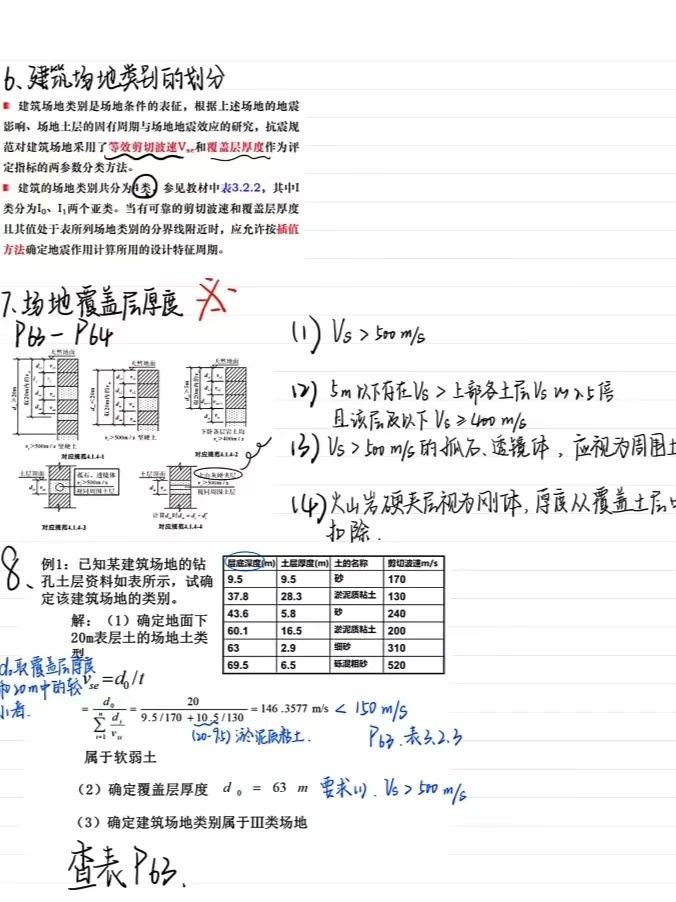 6、建筑场地类别的划分
建筑场地类别是场地条件的表征，根据上述场地的地震
影响、场地土层的固有周期与场地地震效应的研究，抗震规
范对建筑场地采用了等效剪切波速Vse和覆盖层厚度作为评
定指标的两参数分类方法。
建筑的场地类别共分为4类，参见教材中表3.2.2，其中I
类分为I₀、I₁两个亚类。当有可靠的剪切波速和覆盖层厚度
且其值处于表所列场地类别的分界线附近时，应允许按插值
方法确定地震作用计算所用的设计特征周期。
7、场地覆盖层厚度
P63-P64
天然地面
天然地面
天然地面
vs>500m/s 坚硬土
对应规范4.1.4-1
vs>500m/s 坚硬土
下卧各层岩土均
vs>400m/s
对应规范4.1.4-2
(1) Vs>500m/s
(2) 5m以下存在Vs>上部各土层Vs的2.5倍
且该层及以下Vs≥400m/s
(3) Vs>500m/s的孤石、透镜体，应视为周围土
(4) 火山岩硬夹层视为刚体，厚度从覆盖土层中
扣除.
土层剖面
孤石、透镜体
vs>500m/s
视同周围土层
对应规范4.1.4-3
土层剖面
火山岩硬夹层
vs>500m/s
对应规范4.1.4-4
8、
例1：已知某建筑场地的钻
孔土层资料如表所示，试确
定该建筑场地的类别。
层底深度(m) 土层厚度(m) 土的名称 剪切波速m/s
9.5 9.5 砂 170
37.8 28.3 淤泥质粘土 130
43.6 5.8 砂 240
60.1 16.5 淤泥质粘土 200
63 2.9 细砂 310
69.5 6.5 砾混粗砂 520
解：（1）确定地面下
20m表层土的场地土类
型
d₀取覆盖层厚度
和20m中的较
小者.
vse=d₀/t
= d₀ / Σ(i=1→n) di/vsi = 20 / (9.5/170+10.5/130) = 146.3577 m/s < 150m/s
(20-9.5) 淤泥质粘土.
P63.表3.2.3
属于软弱土
（2）确定覆盖层厚度 d₀ = 63 m 要求(1). Vs>500m/s
（3）确定建筑场地类别属于III类场地
查表P63.